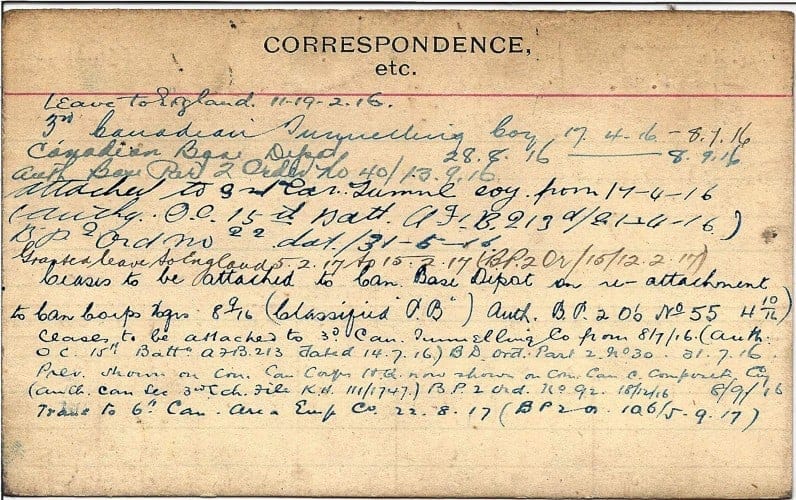 CORRESPONDENCE,
etc.
Leave to England. 11-19-2.16.
3rd Canadian Tunnelling Coy 17.4.16 - 8.7.16
Canadian Base Depot 28.8.16 — 8.9.16
Auth Base Part 2 Order No 40/13.9.16
Attached to 3rd Can. Tunnl Coy. from 17-4-16
(Authy. O.C. 15th Batt. A.F.B. 213 d/21-4-16)
B.P.2 Ord No 22 dat./31-5-16
Granted leave to England 5.2.17 to 15.2.17 (B.P.2 Or/15/12.2.17)
Ceases to be attached to Can. Base Depot on re-attachment
to Can Corps Hqrs. 8 9/16 (Classified "P.B") Auth. B.P. 2 No 55 4 10/16
Ceases to be attached to 3rd Can. Tunnelling Co from 8/7/16. (Auth:
O.C. 15th Battn A.F.B.213 dated 14.7.16) B.D. Ord. Part 2. No 30. 31.7.16.
Prev. shown on Can Corps H.Q. now shown on Can C. Composite Coy
(auth. Can Sec 3rd Ech. File K.H. 111/1747.) B.P.2 Ord. No. 92. 18/12/16 8/9/16
Trans to 6th Can. Area Emp Co. 22.8.17 (B P 2 O. 106/5.9.17)